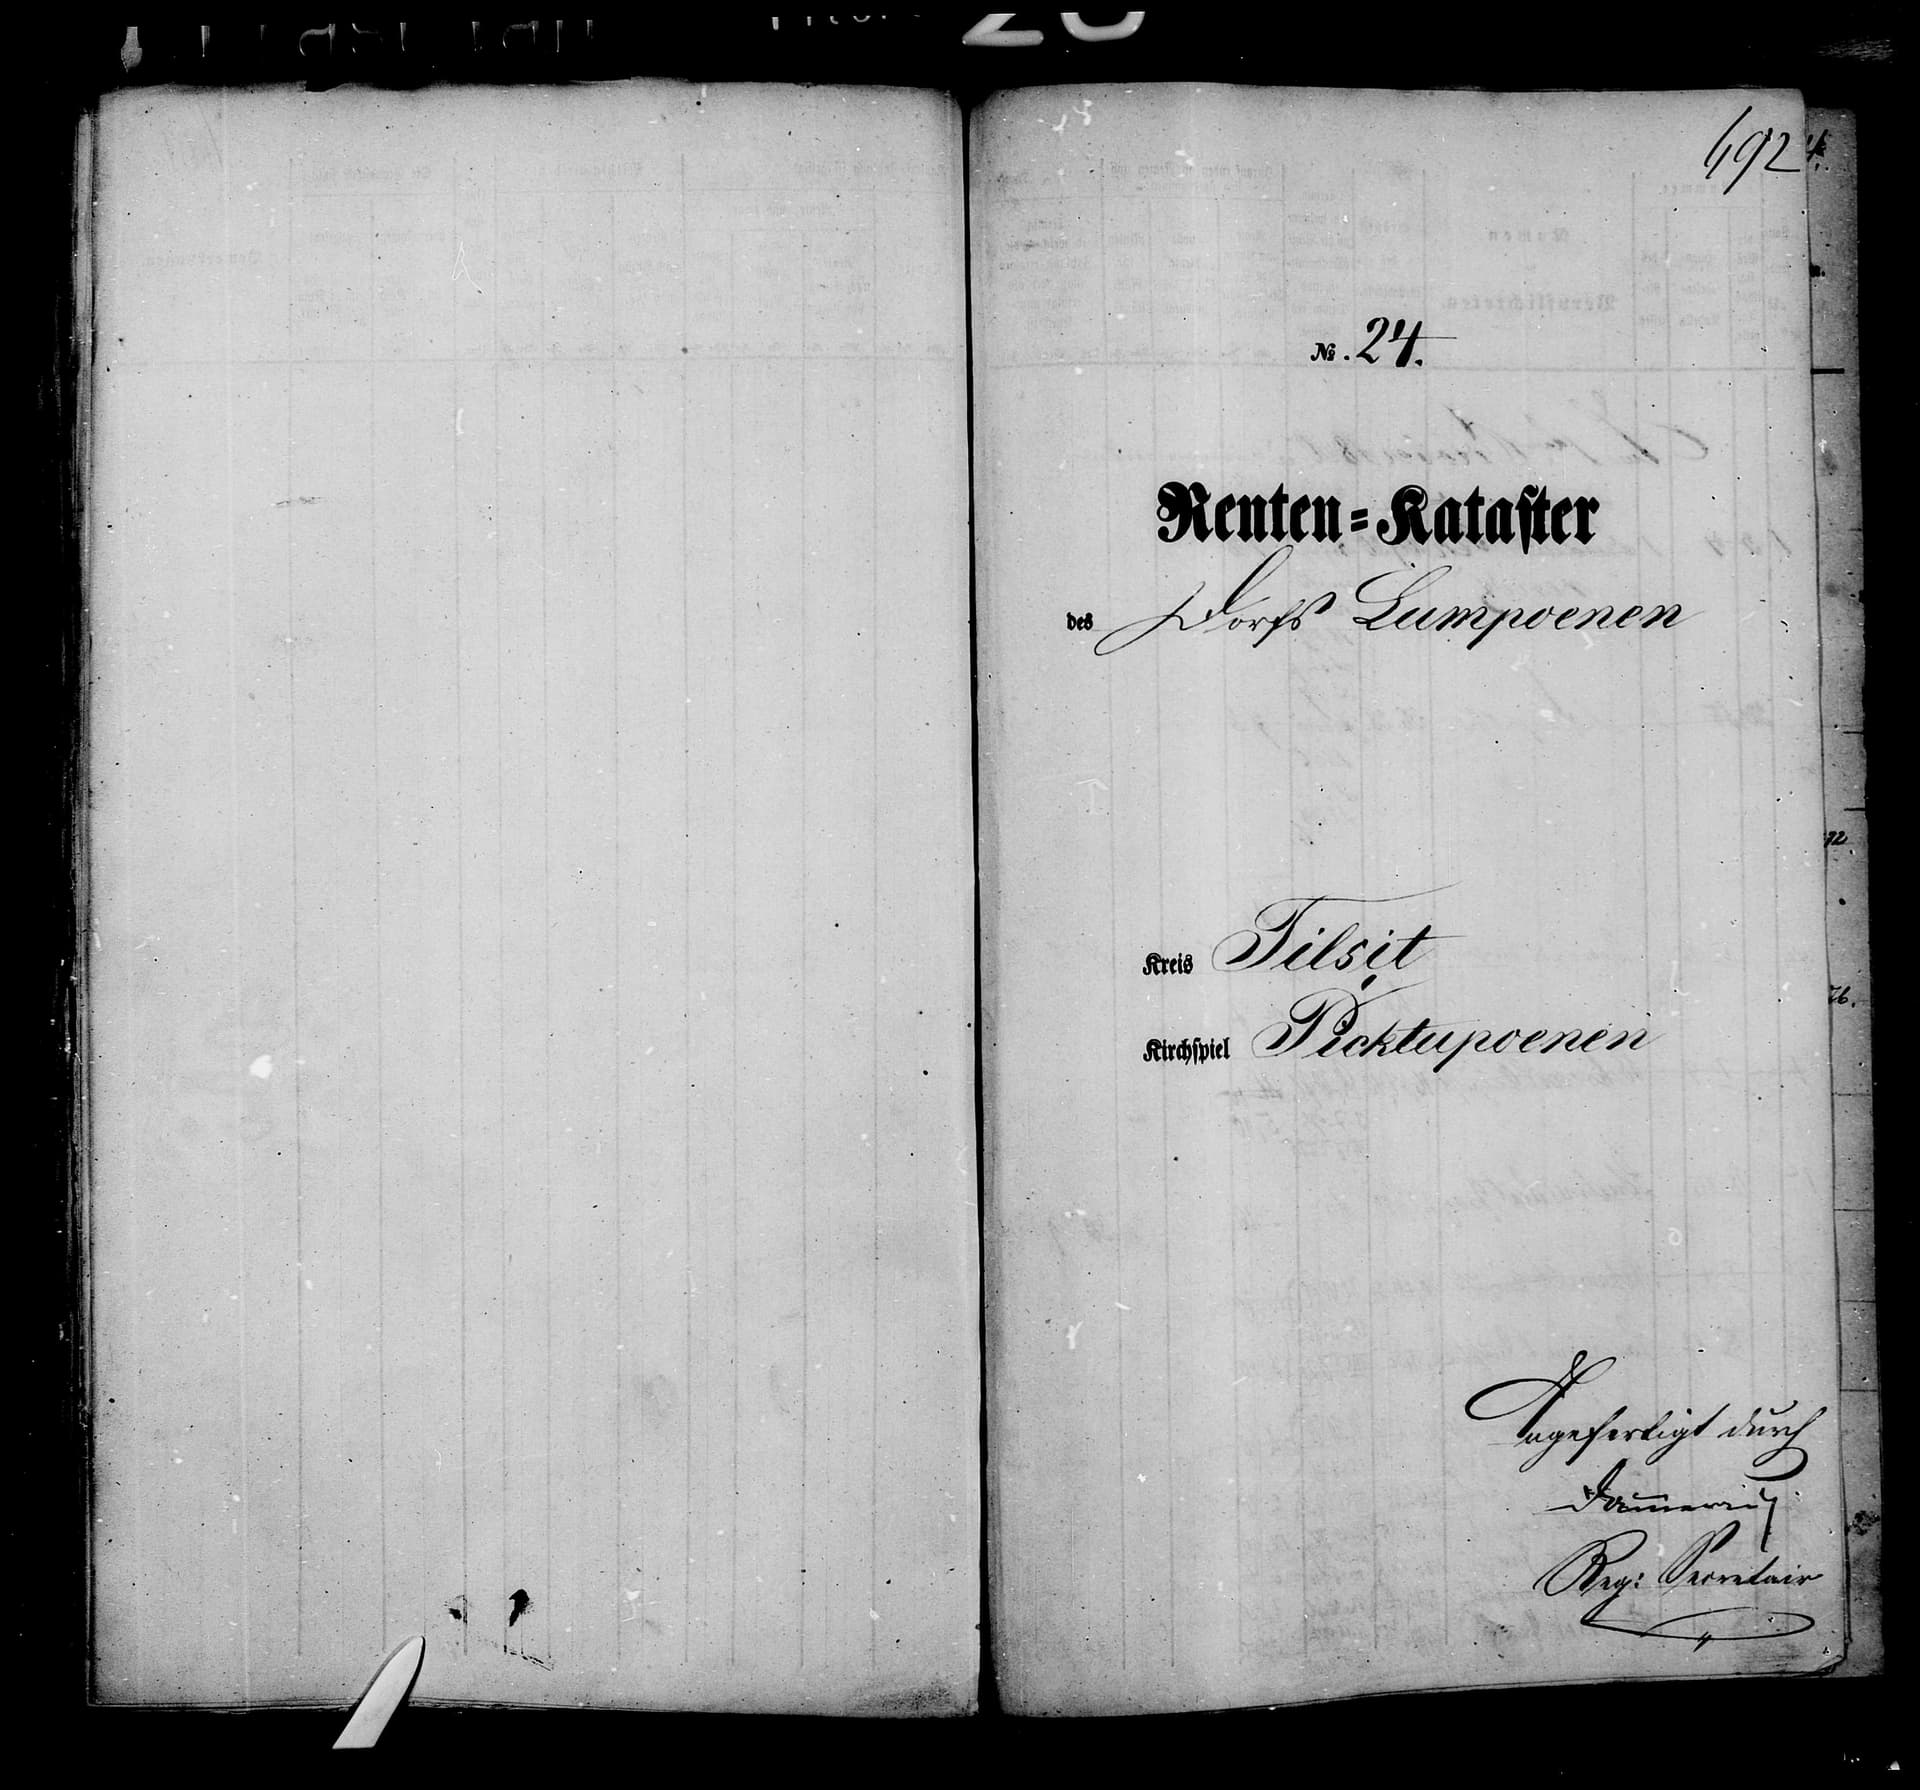 692
№. 24.
Renten=Kataſter
des Dorfs Lumpoenen
Kreis Tilsit
Kirchſpiel Picktupoenen
Angefertigt durch
Reg: Secretair